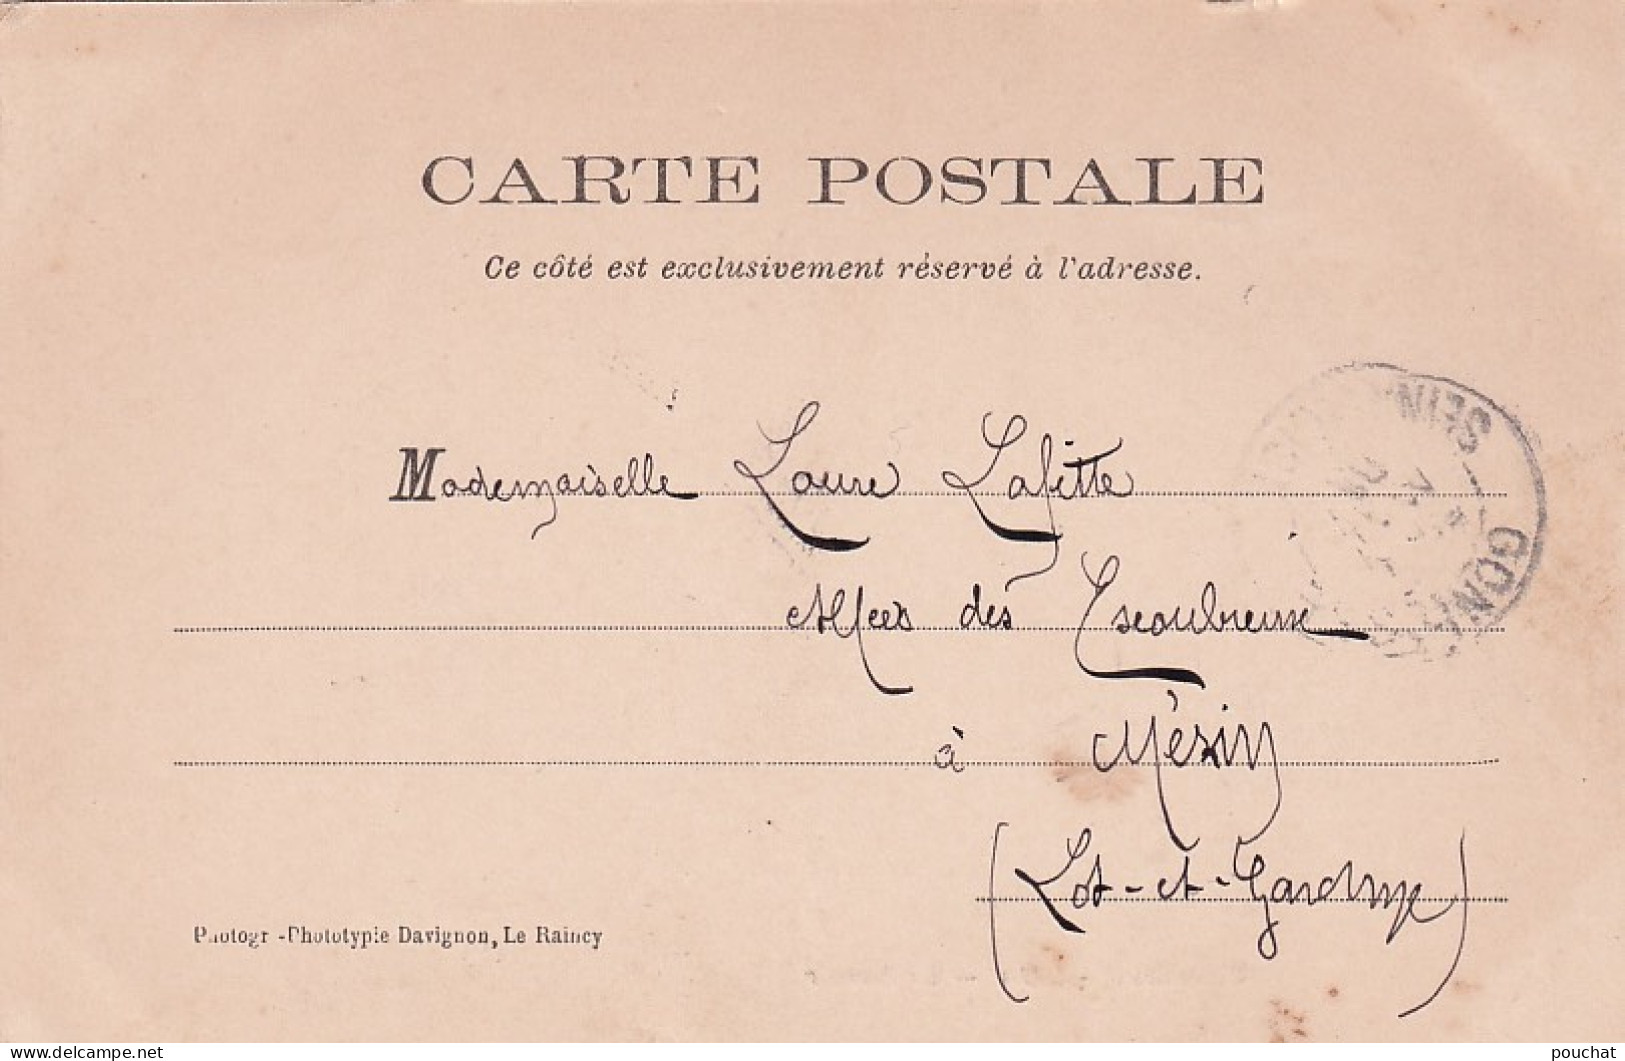 CARTE POSTALE
Ce côté est exclusivement réservé à l'adresse.
Mademoiselle Laure Lafitte
Allées des
à Mézin
(Lot-et-Garonne)
Photogr-Phototypie Davignon, Le Raincy
delcampe.net
pouchat